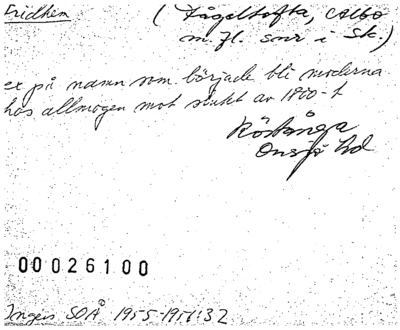 Fridhem
(Fågeltofta, Albo
m.fl. snr i Sk.)
ex på namn som började bli moderna
hos allmogen mot slutet av 1800-t
Röstånga
Onsjö hd
00026100
Ingers SOÅ 1955-1957:32